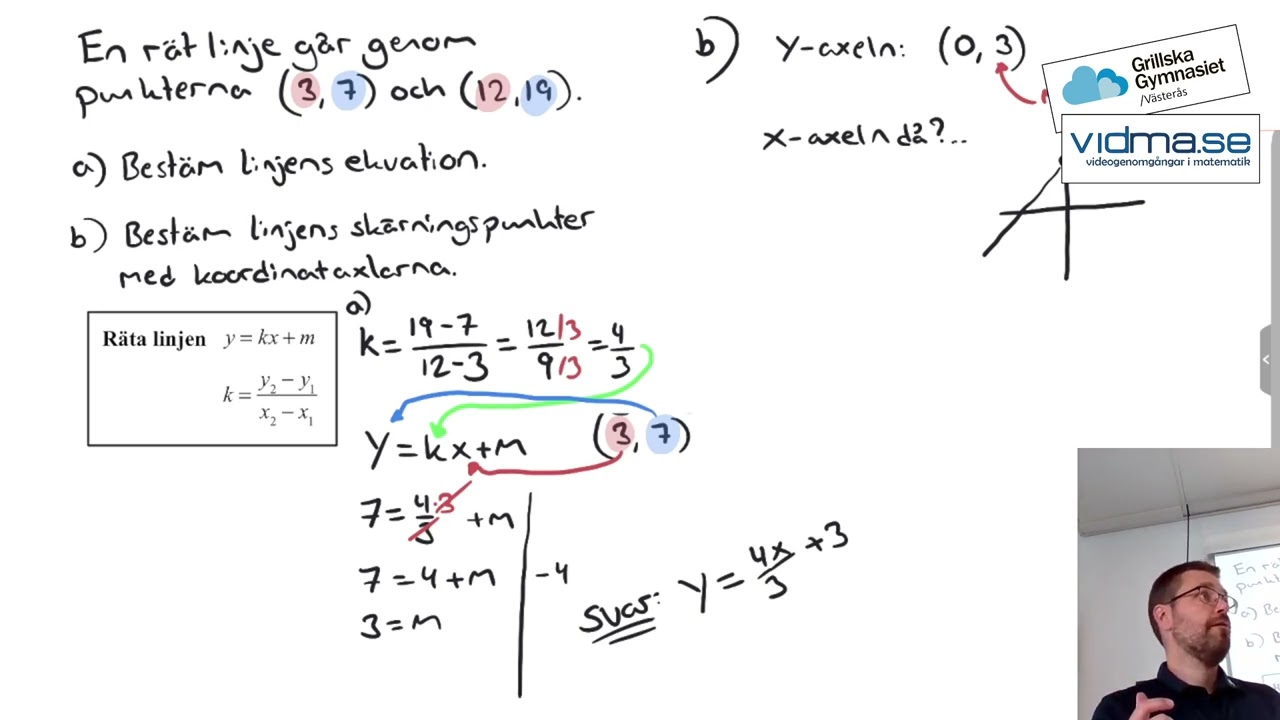 En rät linje går genom
punkterna (3, 7) och (12, 19).
a) Bestäm linjens ekvation.
b) Bestäm linjens skärningspunkter
med koordinataxlarna.
Räta linjen y = kx + m
k = (y₂ − y₁)/(x₂ − x₁)
a)
k = (19 - 7)/(12 - 3) = (12/3)/(9/3) = 4/3
y = kx + m (3, 7)
7 = (4·3)/3 + m
7 = 4 + m | -4
3 = m
Svar: y = 4x/3 + 3
b) Y-axeln: (0, 3)
X-axeln då?..
Grillska
Gymnasiet
/Västerås
vidma.se
videogenomgångar i matematik
En rä
punkte
a) Be
b) B